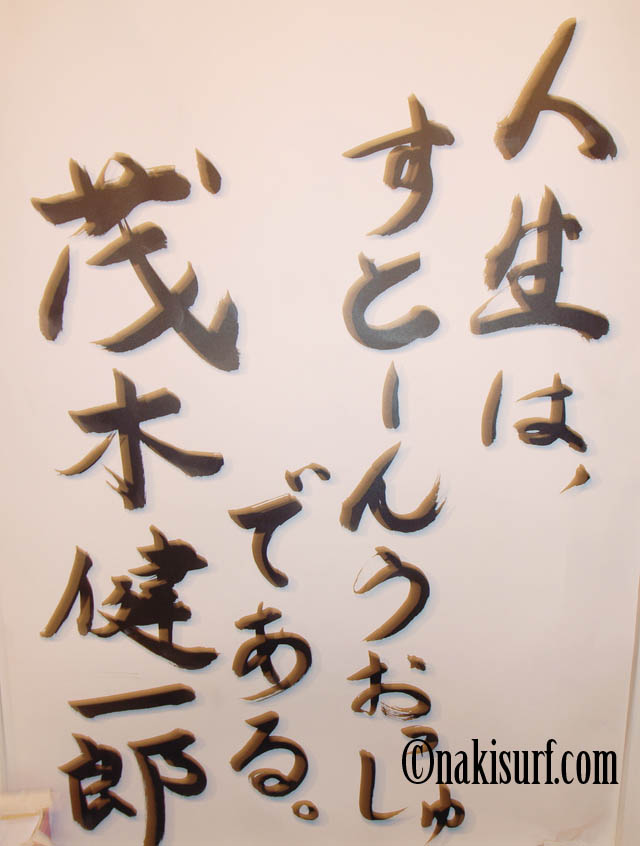 人生は、
すとーんうおっしゅ
である。
茂木健一郎
©nakisurf.com